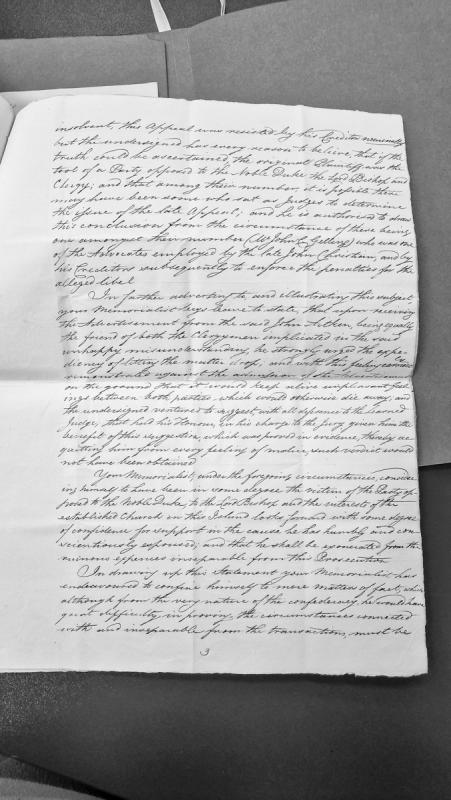 insolvent, this Appeal was resisted by his Creditors
but the undersigned has every reason to believe, that if the
truth could be ascertained, the original Plaintiff was the
tool of a Party opposed to the Noble Duke the Lord Bishop and
Clergy; and that among their number, it is possible there
may have been some who sat as Judges to determine
the issue of the late Appeal; and he is authorised to draw
this conclusion from the circumstance of there being
one amongst their number (Mr John Gelling) who was one
of the Advocates employed by the late John Christian, and by
his Creditors subsequently to enforce the penalties for the
alleged libel
In further adverting to, and illustrating this subject
your Memorialist begs leave to state, that upon receiving
the Advertisement from the said John Aitken, being equally
the friend of both the Clergymen implicated in the said
unhappy misunderstanding, he strongly urged the expe-
diency of letting the matter drop, and with this feeling
remonstrated against the
on the ground that it would keep alive unpleasant feel-
ings between both parties, which would otherwise die away; and
the undersigned ventures to suggest with all deference to the learned
Judge, that had his Honour, in his charge to the Jury given him the
benefit of this suggestion, which was proved in evidence, thereby ac-
quitting him from every feeling of malice, such verdict would
not have been obtained
Your Memorialist, under the foregoing circumstances, consider-
ing himself to have been in some degree the victim of the Party op-
posed to the Noble Duke, to the Lord Bishop and the interests of the
established Church in this Island looks forward with some degree
of confidence for support in the cause he has humbly and con-
scientiously espoused; and that he shall be exonerated from the
ruinous expences inseparable from this Prosecution
In drawing up this Statement your Memorialist has
endeavoured to confine himself to mere matters of fact, which
although from the very nature of the confederacy, he would have
great difficulty in proving, the circumstances connected
with and inseparable from the transactions, must be
3